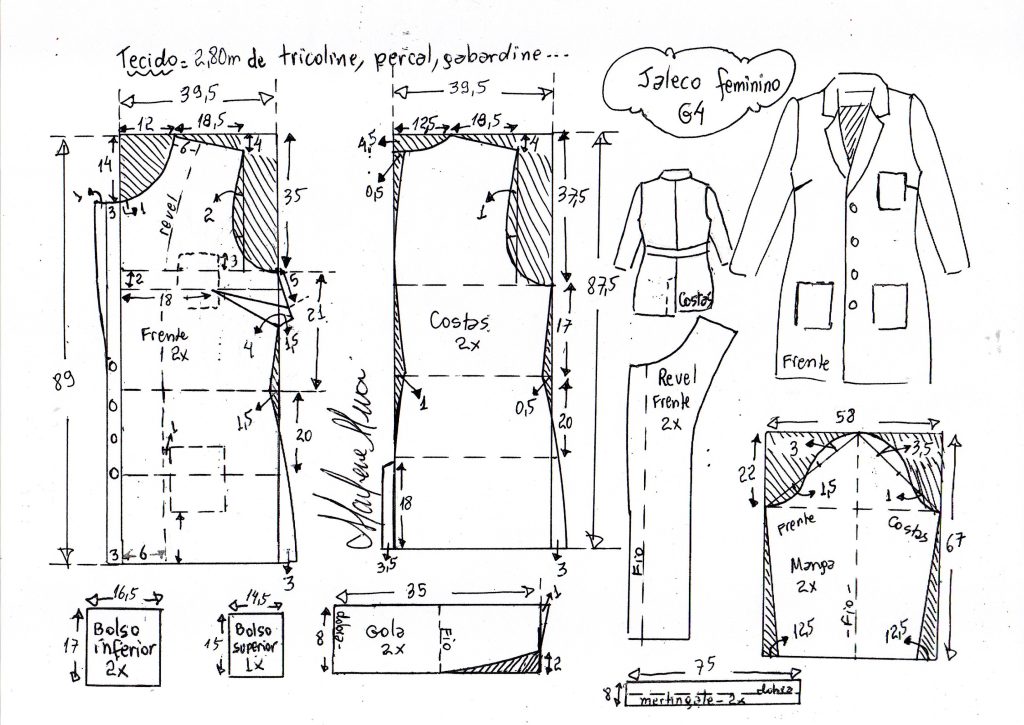 Tecido = 2,80m de tricoline, percal, gabardine...
Jaleco feminino
G4
39,5
12
18,5
14
6
1
4
35
revel
2
3
1
3
2
5
18
21
Frente
2x
4
1,5
89
1,5
20
1
3
6
3
39,5
12,5
18,5
4
1,5
0,5
1
37,5
87,5
Costas
2x
17
1
0,5
20
18
3,5
3
Marlene Mukai
Costas
Frente
Revel
Frente
2x
Fio
58
22
3
3,5
1,5
1
Frente
Costas
Manga
2x
67
Fio
12,5
12,5
16,5
17
Bolso
inferior
2x
14,5
15
Bolso
superior
1x
35
1
8
dobra
Gola
2x
Fio
2
75
8
martingale - 2x
dobra